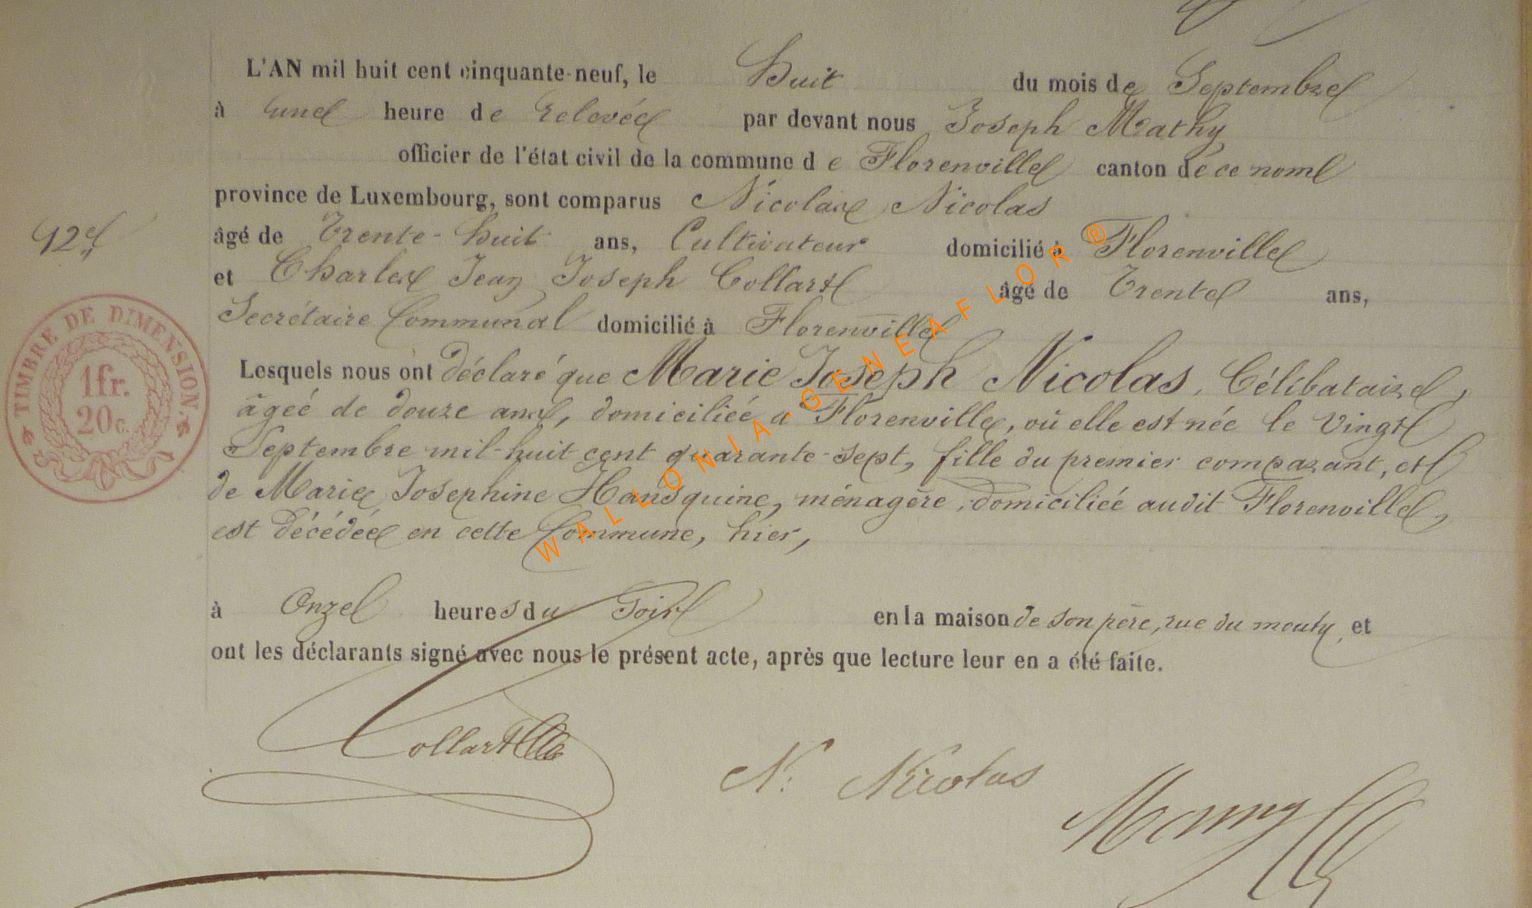 L'AN mil huit cent cinquante-neuf, le huit du mois de Septembre
à une heure de relevée par devant nous Joseph Mathy
officier de l'état civil de la commune de Florenville canton de ce nom
province de Luxembourg, sont comparus Nicolas Nicolas
âgé de Trente-huit ans, Cultivateur domicilié à Florenville
et Charles Jean Joseph Collart âgé de Trente ans,
Secrétaire Communal domicilié à Florenville
Lesquels nous ont déclaré que Marie Joseph Nicolas, Célibataire,
âgée de douze ans, domiciliée a Florenville, où elle est née le vingt
Septembre mil-huit cent quarante-sept, fille du premier comparant, et
de Marie Josephine Hansquine, ménagère, domiciliée audit Florenville,
est décédée en cette Commune, hier,
à Onze heures du Soir en la maison de son père, rue du mouty, et
ont les déclarants signé avec nous le présent acte, après que lecture leur en a été faite.
12e
TIMBRE DE DIMENSION.
1fr.
20c.
Collart
N. Nicolas
WALLONIA-GENEAFLOR ®